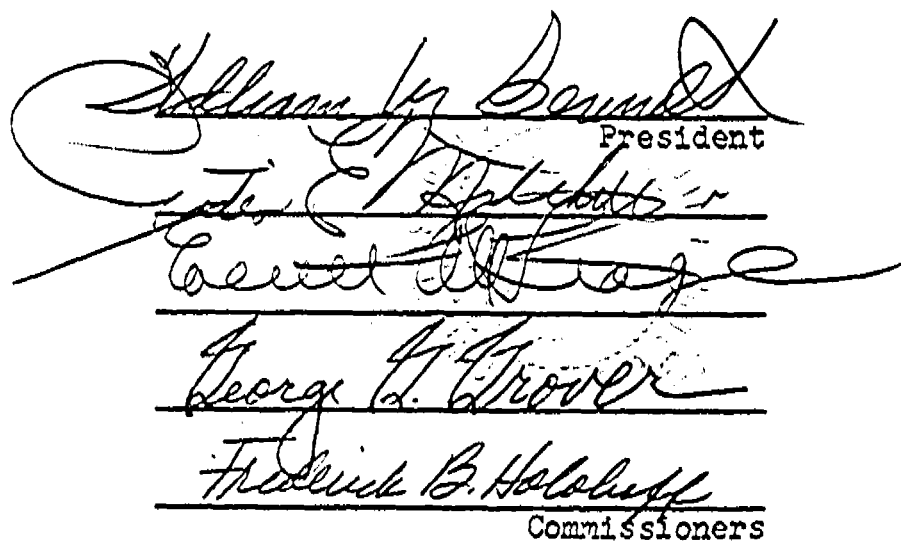 William M. Bennett
President
E. Mitchell
Everett C. McKeage
George G. Grover
Frederick B. Holoboff
Commissioners